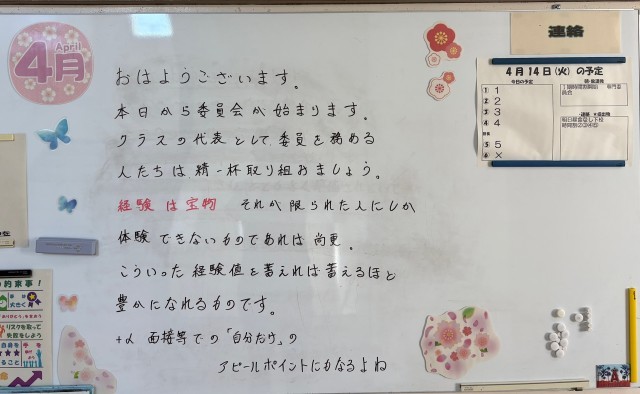 April
4月
おはようございます。
本日から委員会が始まります。
クラスの代表として委員を務める
人たちは精一杯取り組みましょう。
経験は宝物 それが限られた人にしか
体験できないものであれば尚更。
こういった経験値を蓄えれば蓄えるほど
豊かになれるものです。
+α 面接等での「自分だけ」の
アピールポイントにもなるよね
連絡
4月14日(火)の予定
今日の予定
1 1
2 2
3 3
4 4
5 5
6 ×
リスクを取って
失敗をしよう